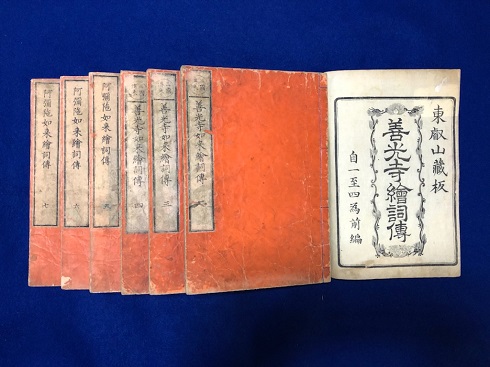 東叡山藏板
善光寺繪詞傳
自一至四為前編
善光寺如来繪詞傳
善光寺如来繪詞傳 三
善光寺如来繪詞傳 四
阿彌陀如来繪詞傳 五
阿彌陀如来繪詞傳 六
阿彌陀如来繪詞傳 七